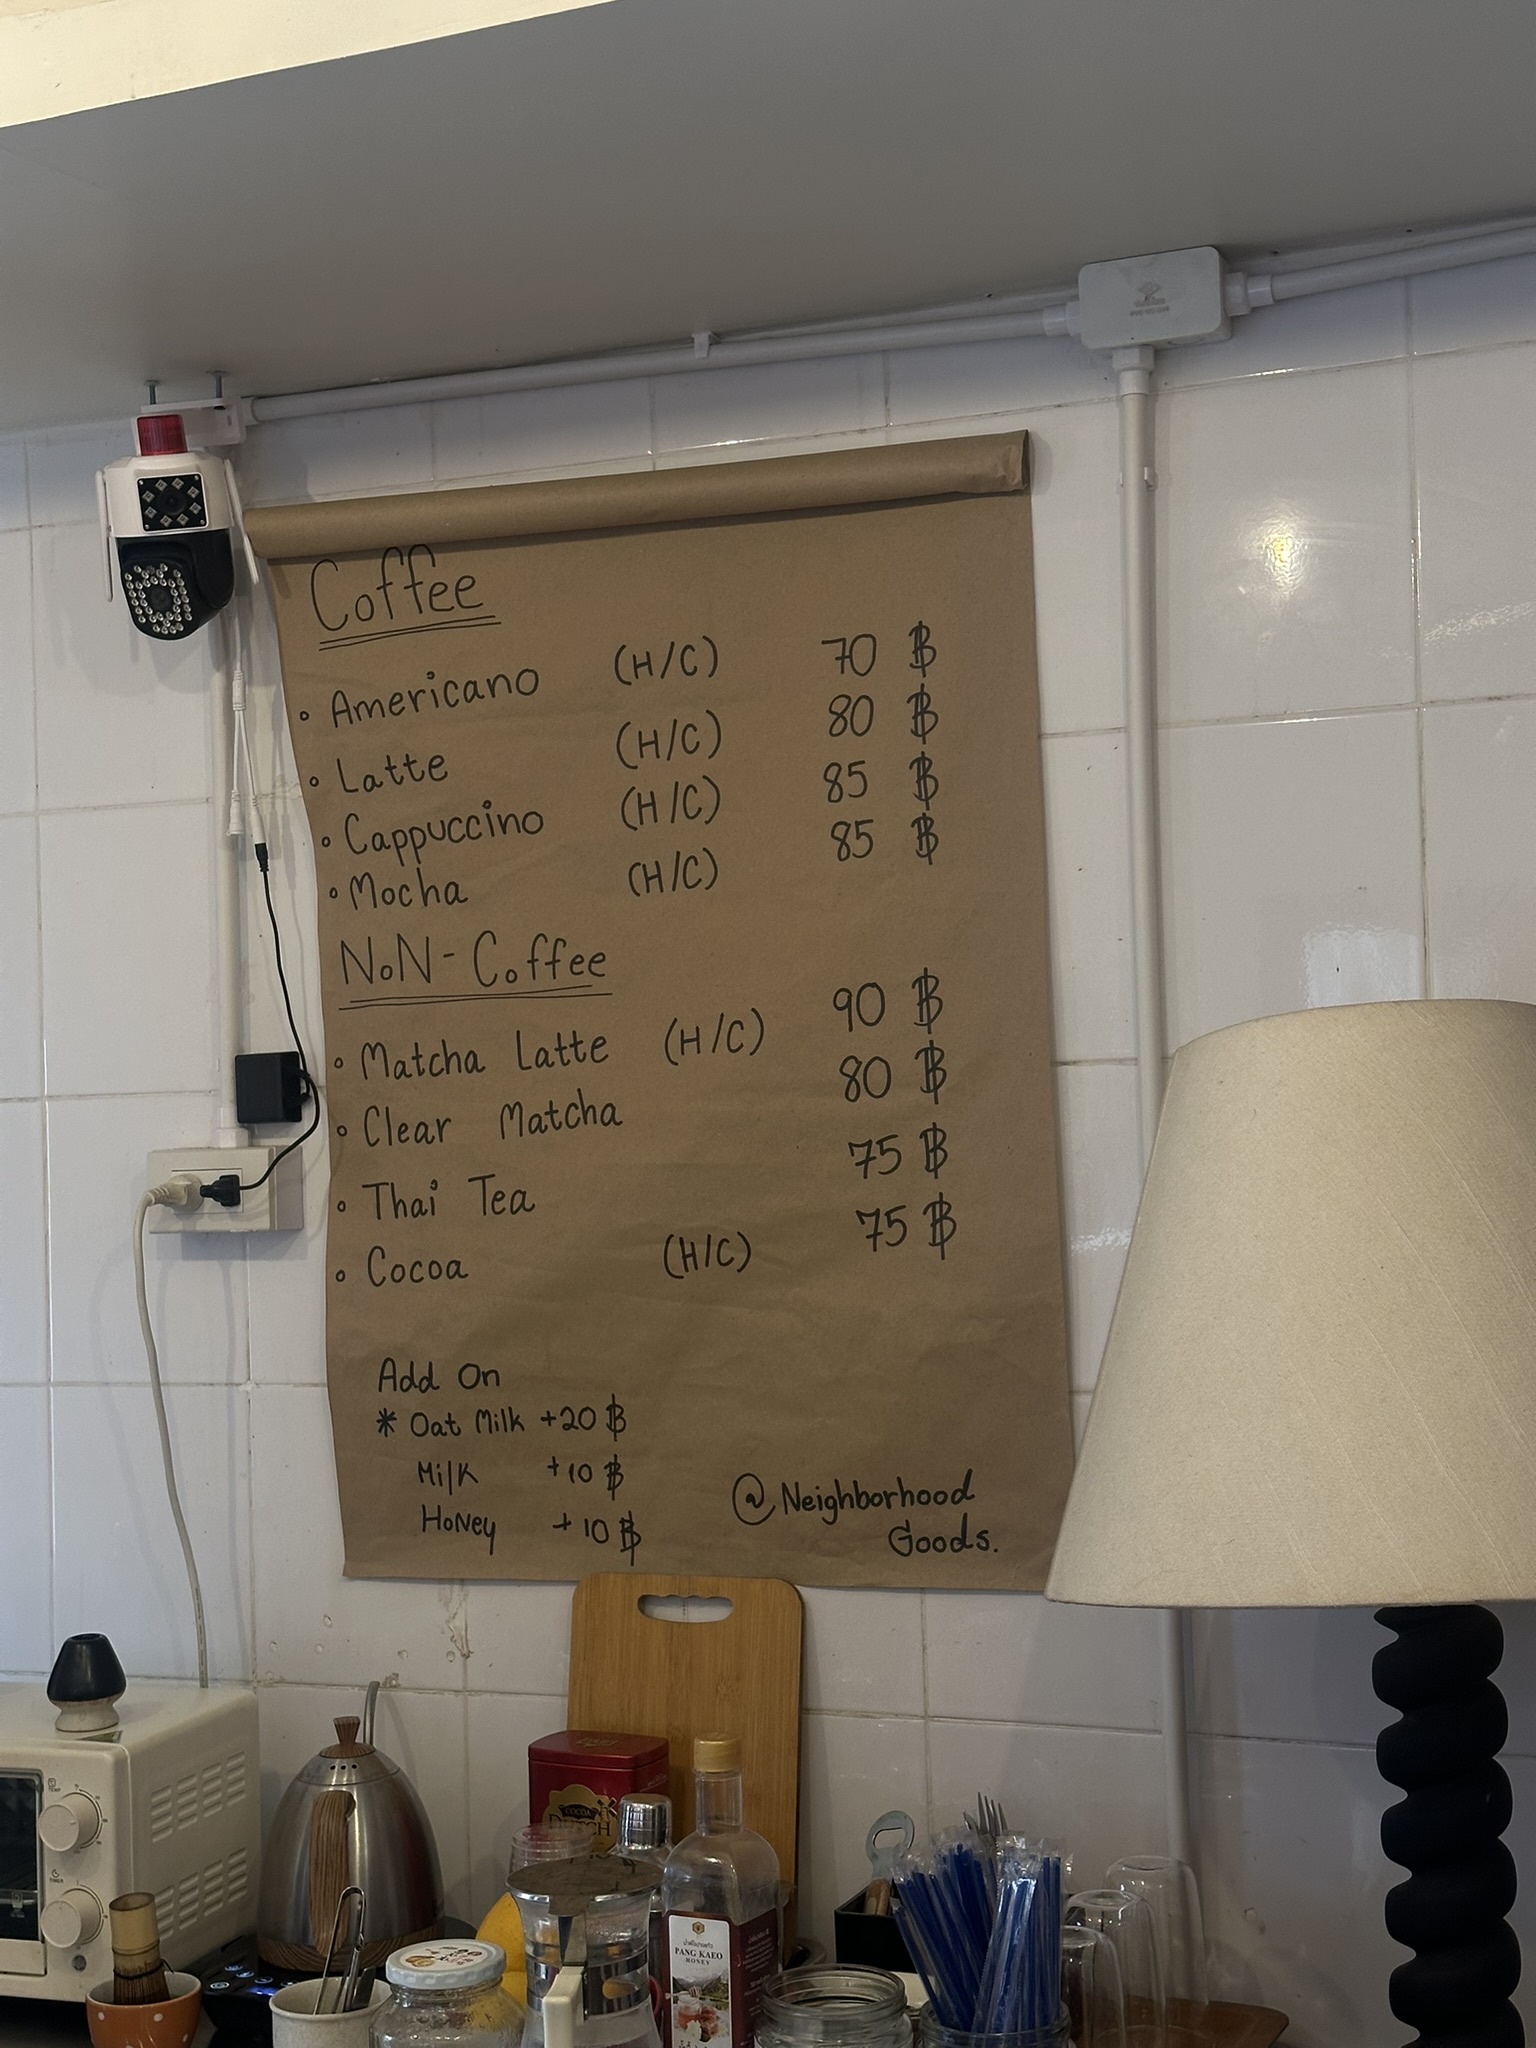 Coffee
◦ Americano (H/C) 70 ฿
◦ Latte (H/C) 80 ฿
◦ Cappuccino (H/C) 85 ฿
◦ Mocha (H/C) 85 ฿
NoN-Coffee
◦ Matcha Latte (H/C) 90 ฿
◦ Clear Matcha 80 ฿
◦ Thai Tea 75 ฿
◦ Cocoa (H/C) 75 ฿
Add On
* Oat Milk +20 ฿
Milk +10 ฿
HoNey +10 ฿
@Neighborhood
Goods.
COCOA
DUTCH
PANG KAEO
HONEY
TIMER